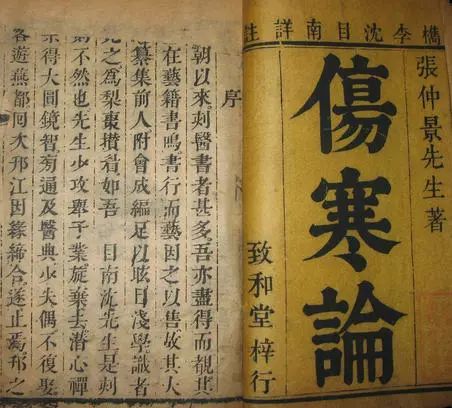 檇李沈目南詳註
張仲景先生著
傷寒論
致和堂梓行
序
朝以來刻醫書者甚多吾亦盡得而觀其
在藝籍書鳴書行而藝因之以售故其大
纂集前人附會成編足以眩目淺學識者
之為梨棗攢着如吾 目南沈先生是刻
則不然也先生少攻舉子業旋棄去潛心禪
宗得大圓鏡智旁通及醫典少失偶不復娶
客遊燕都回大邗江因緣締合遂止焉邗之